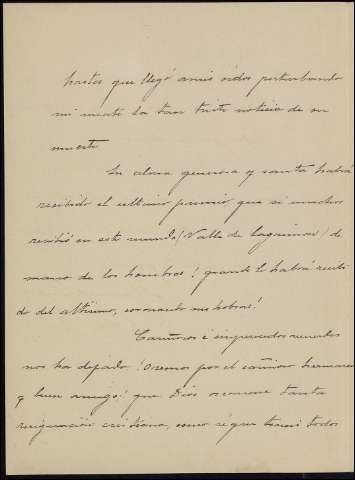 hasta que llegó a mis oidos perturbando
mi mente la tan triste noticia de su
muerte
Su alma generosa y santa habrá
recibido el ultimo premio que si muchos
recibió en este mundo (Valle de lagrimas) de
mano de los hombres! grande lo habrá recibi
do del altisimo, coronando sus hobras!
Cariñosos é imperecederos recuerdos
nos ha dejado; ! Oremos por el cariñoso hermano
y buen amigo! que Dios os conceda tanta
resignación cristiana, como sé que teneis todos